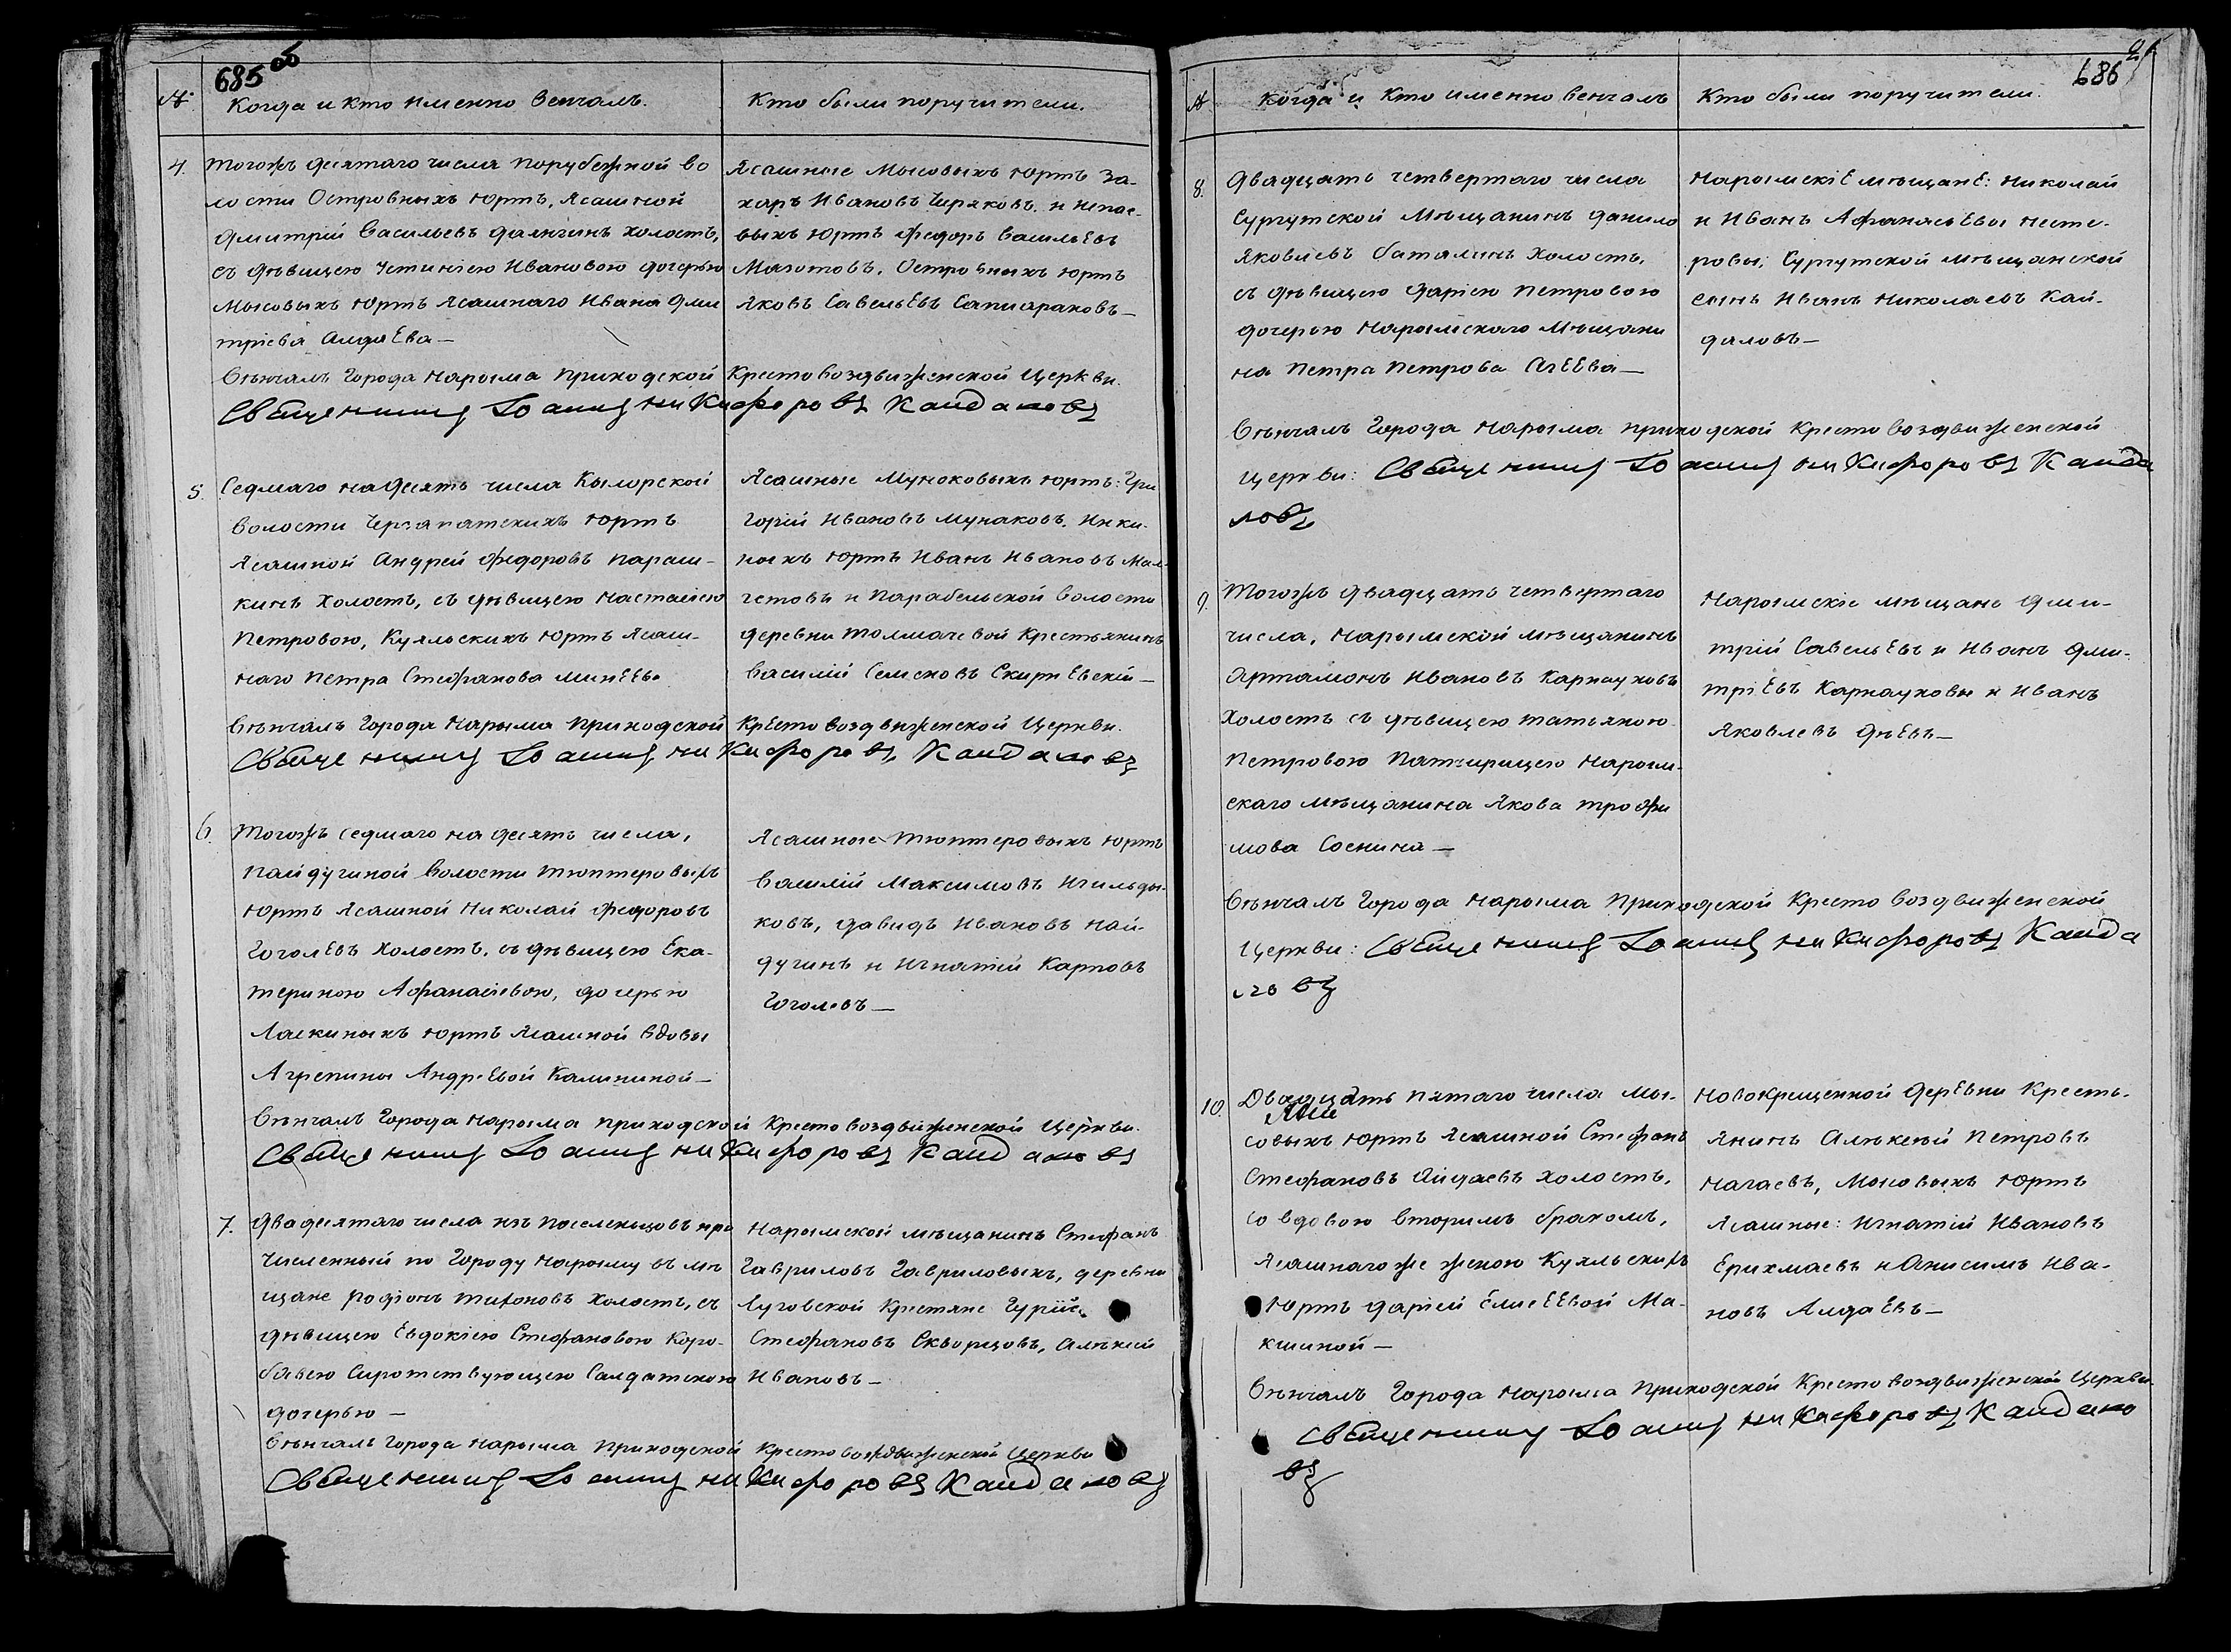 685 об
№ Когда и кто именно венчалъ. Кто были поручители.
4. Тогожъ десятаго числа Порубежной во
лости Островныхъ юртъ, Ясашной
Дмитрий Васильевъ холостъ,
съ девицею Устиниею Ивановою дочерью
Мысовыхъ юртъ Ясашнаго Ивана Дми
трiева Алдаева —
Ясашные Мысовыхъ юртъ За-
харъ Ивановъ Чиряковъ, и
выхъ юртъ Федоръ Васильевъ
Маготовъ, Островныхъ юртъ
Яковъ Савельевъ Саписараковъ —
Вѣнчалъ Города Нарыма Приходской Крестовоздвиженской Церкви.
Священникъ Iоаннъ Никифоровъ Кайдаловъ
5. Седмаго надесять числа Кылорской
волости юртъ
Ясашной Андрей Федоровъ Параш-
кинъ холостъ, съ дѣвицею Настасiею
Петровою, Куяльскихъ юртъ Ясаш-
наго Петра Стефанова Минеева
Ясашные Муноковыхъ юртъ: Гри
горiй Ивановъ Мунаковъ, Инки-
ныхъ юртъ Иванъ Ивановъ Мал-
гетовъ и Парабельской волости
деревни Толмачевой Крестьянинъ
Василiй Семеновъ Скирневскiй —
Вѣнчалъ Города Нарыма Приходской Крестовоздвиженской Церкви.
Священникъ Iоаннъ Никифоровъ Кайдаловъ
6. Тогожъ седмаго надесять числа,
Пайдугиной волости Тюптеровыхъ
юртъ Ясашной Николай Федоровъ
Гоголевъ холостъ, съ дѣвицею Ека-
териною Афанасiевою, дочерью
Ласкиныхъ юртъ Ясашной вдовы
Агрепины Андреевой Калининой —
Ясашные Тюптеровыхъ юртъ
Василiй Максимовъ Игильды-
ковъ, Давидъ Ивановъ Най-
дугинъ и Игнатiй Карповъ
Гоголевъ —
Вѣнчалъ Города Нарыма приходской Крестовоздвиженской Церкви.
Священникъ Iоаннъ Никифоровъ Кайдаловъ
7. Двадесятаго числа изъ поселенцовъ при
численный по Городу Нарыму въ мѣ
щане Родiонъ Тихоновъ холостъ, съ
дѣвицею Евдокiею Стефановою Коро-
бьевою Сиротствующею Салдатскою
дочерью —
Нарымской мѣщанинъ Стефанъ
Гавриловъ Гавриловыхъ, деревни
Луговской Крестяне Гурiй
Стефановъ Скворцовъ, Алѣксѣй
Ивановъ —
Вѣнчалъ Города Нарыма Приходской Крестовоздвиженской Церкви
Священникъ Iоаннъ Никифоровъ Кайдаловъ
686
№ Когда и Кто именно венчалъ Кто были поручители.
8. Двадцать четвертаго числа
Сургутской Мѣщанинъ Данило
Яковлевъ Баталинъ холостъ,
съ дѣвицею Дарiею Петровою
дочерью Нарымскаго Мѣщани
на Петра Петрова Агеева —
Нарымскiе мѣщане: Николай
и Иванъ Афанасьевы Несте-
ровы, Сургутской мѣщанской
сынъ Иванъ Николаевъ Кай-
даловъ —
Вѣнчалъ Города Нарыма приходской Крестовоздвиженской
Церкви: Священникъ Iоаннъ Никифоровъ Кайда
ловъ
9. Тогожъ двадцать четвертаго
числа, Нарымской мѣщанинъ
Артамонъ Ивановъ Карнауховъ
холостъ съ дѣвицею Татьяною
Петровою Патчирицею Нарым-
скаго мѣщанина Якова Трофи
мова Соснина —
Нарымскiе мѣщане Дми-
трiй Савельевъ и Иванъ Дми-
трiевъ Карнауховы и Иванъ
Яковлевъ Дѣевъ —
Вѣнчалъ Города Нарыма Приходской Крестовоздвиженской
Церкви: Священникъ Iоаннъ Никифоровъ Кайда
ловъ
10. Двадцать пятаго числа Мы-
совыхъ юртъ Ясашной Стефанъ
Стефановъ Айдаевъ холостъ,
со вдовою вторымъ бракомъ,
Ясашнагоже женою Куяльскихъ
юртъ Дарiей Елисеевой Ма-
кшиной —
Новокрещенной Деревни Кресть-
янинъ Алѣксѣй Петровъ
Нагаевъ, Мысовыхъ юртъ
Ясашные: Игнатiй Ивановъ
Ерихмаевъ и Анисимъ Ива-
новъ Алдаевъ —
Вѣнчалъ Города Нарыма Приходской Крестовоздвиженской Церкви
Священникъ Iоаннъ Никифоровъ Кайдало
въ